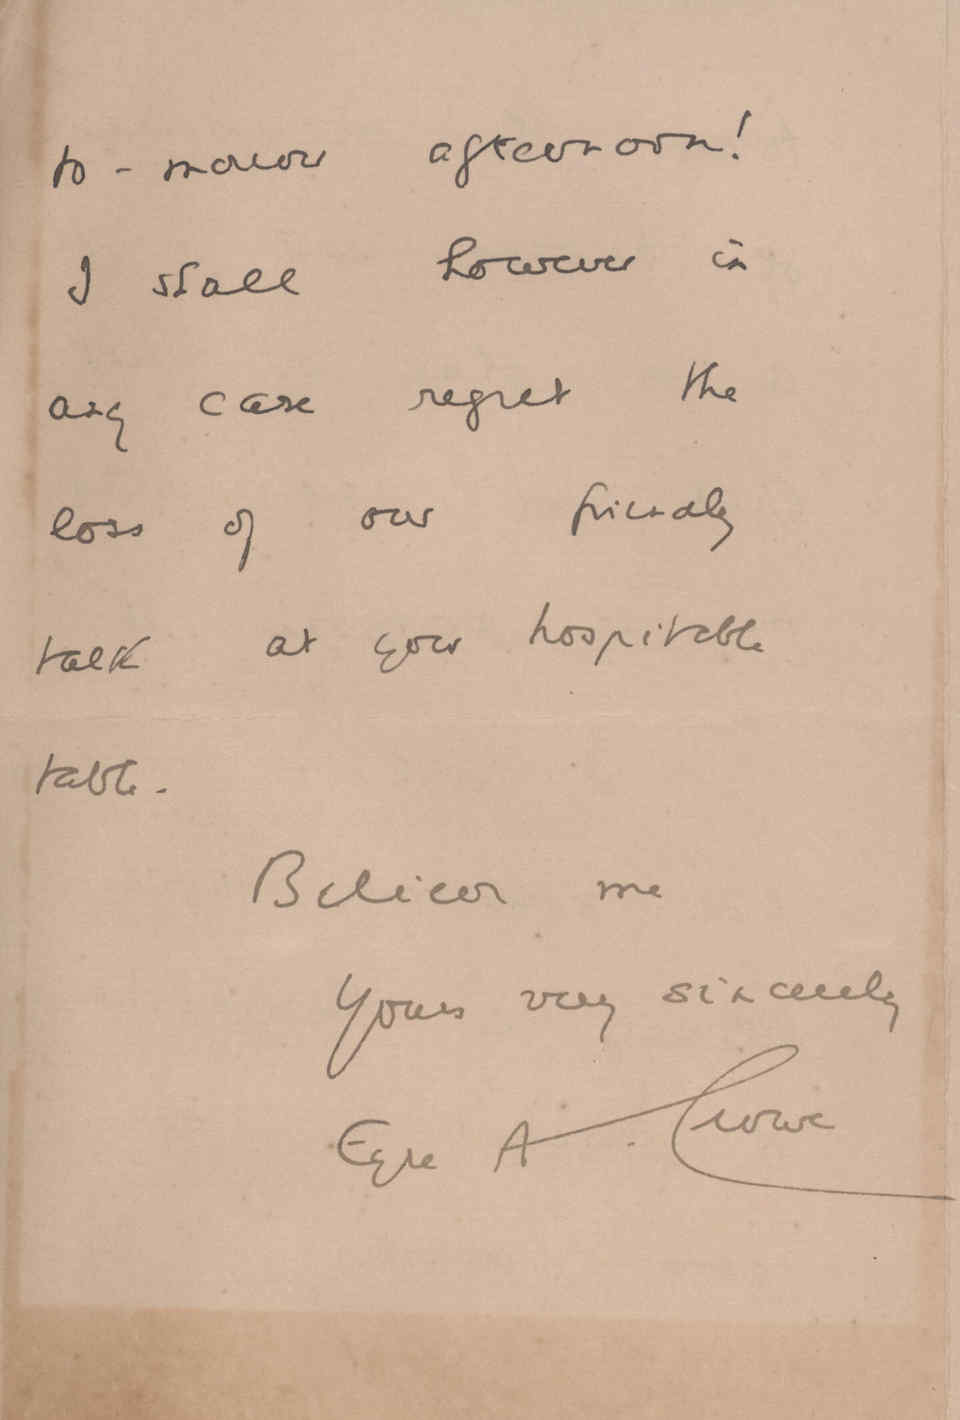 to-morrow afternoon!
I shall however in
any case regret the
loss of our friendly
talk at your hospitable
table.
Believe me
Yours very sincerely
Eyre A. Crowe